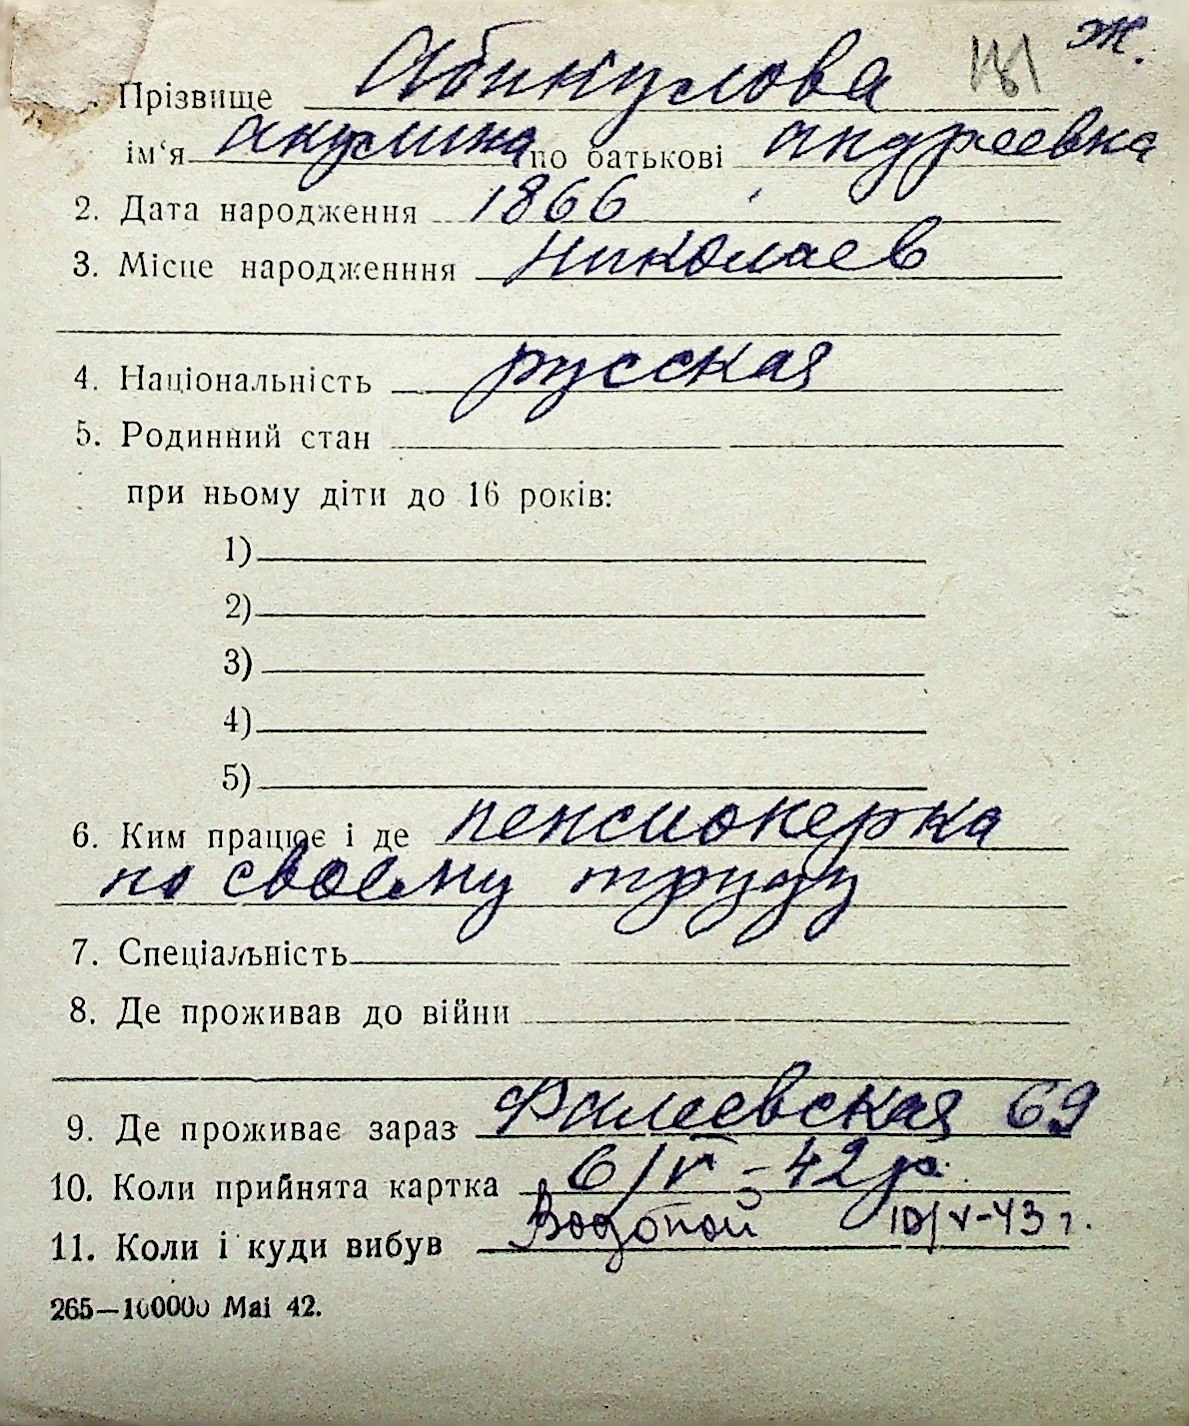 ж.
Прізвище Абикулова
ім‘я акулина по батькові андреевна
2. Дата народження 1866
3. Місце народженння николаев
4. Національність русская
5. Родинний стан
при ньому діти до 16 років:
1)
2)
3)
4)
5)
6. Ким працює і де пенсионерка
по своему труду
7. Спеціальність
8. Де проживав до війни
9. Де проживає зараз Фалеевская 69
10. Коли прийнята картка 6/V - 42 г.
11. Коли і куди вибув Водопой 10/V-43 г.
265—100000 Mai 42.